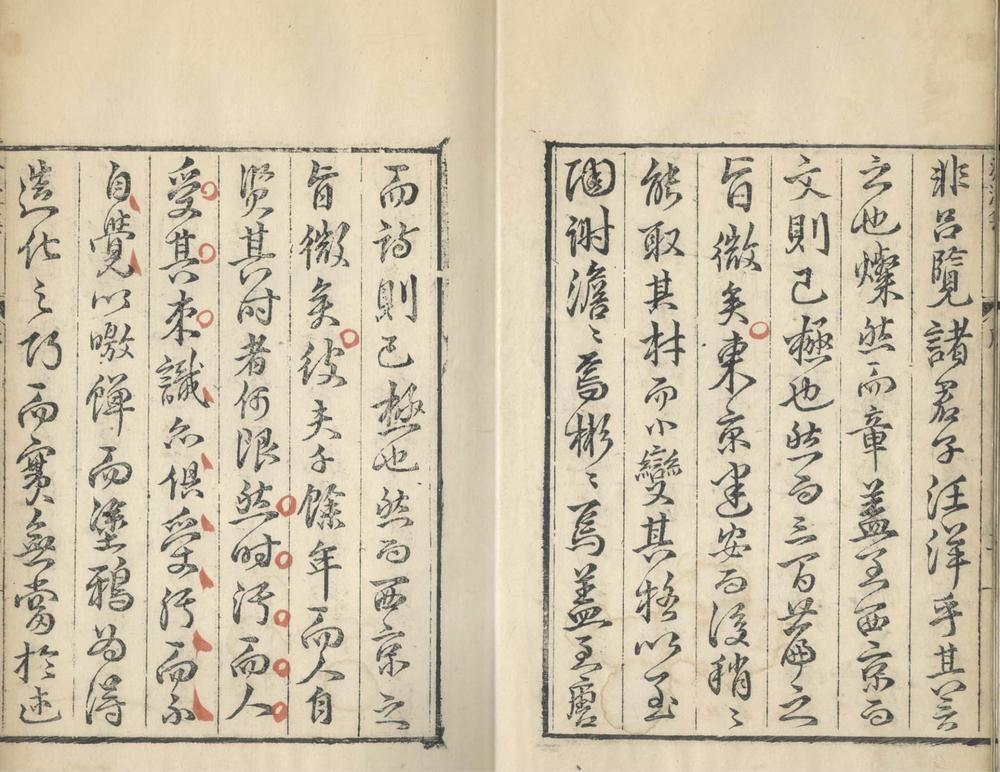 非呂覽諸君子汪洋乎其言
之也燦然而章蓋至西京而
文則已極也然而三百篇之
旨微矣東京建安而後稍〻
能取其材而小變其格以至
陶謝澹〻焉彬〻焉蓋至唐
而詩則已極也然而西京之
旨微矣彼夫千餘年而人自
賢其時者何限然時污而人
受其本識亦俱受污而不
自覺以噭蟬而塗鴉為得
造化之巧而實無當於述